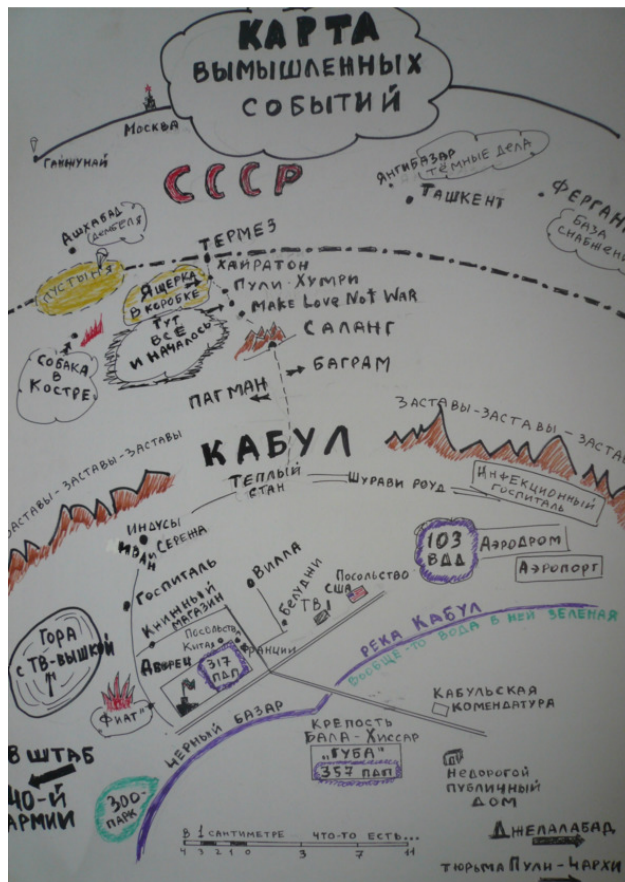 КАРТА
ВЫМЫШЛЕННЫХ
СОБЫТИЙ
МОСКВА
ГАЙЖУНАЙ
СССР
ЯНГИБАЗАР
ТЁМНЫЕ ДЕЛА
ТАШКЕНТ
ФЕРГАН
БАЗА
СНАБЖЕНИ
АШХАБАД
ДЕМБЕЛЯ
ПУСТЫНЯ
ТЕРМЕЗ
ХАЙРАТОН
ЯЩЕРКА
В КОРОБКЕ
ПУЛИ-ХУМРИ
MAKE LOVE NOT WAR
ТУТ
ВСЁ
И НАЧАЛОСЬ
САЛАНГ
СОБАКА
В
КОСТРЕ
БАГРАМ
ПАГМАН
ЗАСТАВЫ-ЗАСТАВЫ-ЗАСТАВЫ
ЗАСТАВЫ-ЗАСТАВЫ-ЗАСТАВ
КАБУЛ
ТЕПЛЫЙ
СТАН
ШУРАВИ РОУД
ИНФЕКЦИОННЫЙ
ГОСПИТАЛЬ
ИНДУСЫ
СЕРЕЖА
103
ВДД
АЭРОДРОМ
АЭРОПОРТ
ГОСПИТАЛЬ
ВИЛЛА
БЕЛУДЖИ
ТВ
ПОСОЛЬСТВО
США
КНИЖНЫЙ
МАГАЗИН
ПОСОЛЬСТВА
КИТАЯ
ФРАНЦИИ
ГОРА
С ТВ-ВЫШКОЙ
ДВОРЕЦ
317
ПДП
РЕКА КАБУЛ
ВООБЩЕ-ТО ВОДА В НЕЙ ЗЕЛЕНАЯ
"ФИАТ"
КАБУЛЬСКАЯ
КОМЕНДАТУРА
ЧЕРНЫЙ БАЗАР
КРЕПОСТЬ
БАЛА-ХИССАР
"ГУБА"
357 ПДП
В ШТАБ
40-Й
АРМИИ
ЗОО-
ПАРК
НЕДОРОГОЙ
ПУБЛИЧНЫЙ
ДОМ
В 1 САНТИМЕТРЕ ЧТО-ТО ЕСТЬ...
4 3 2 1 0 3 7 11
ДЖЕЛАЛАБАД
ТЮРЬМА ПУЛИ-ЧАРХИ